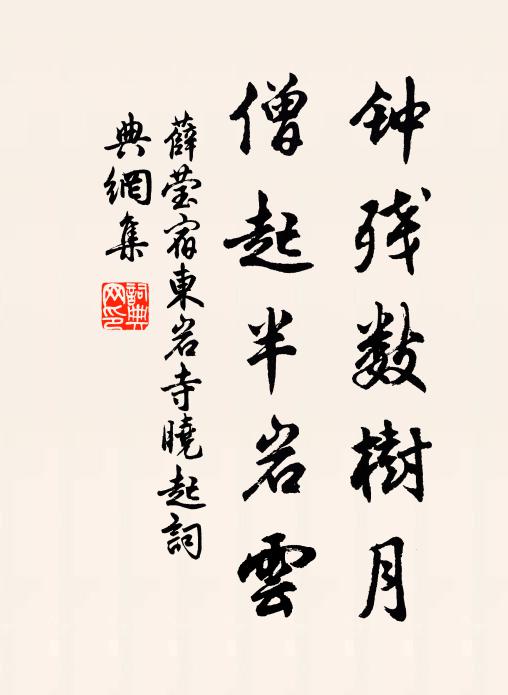 钟残数樹月
僧起半岩雲
薛莹宿東岩寺曉起詞
典網集
詞典网印